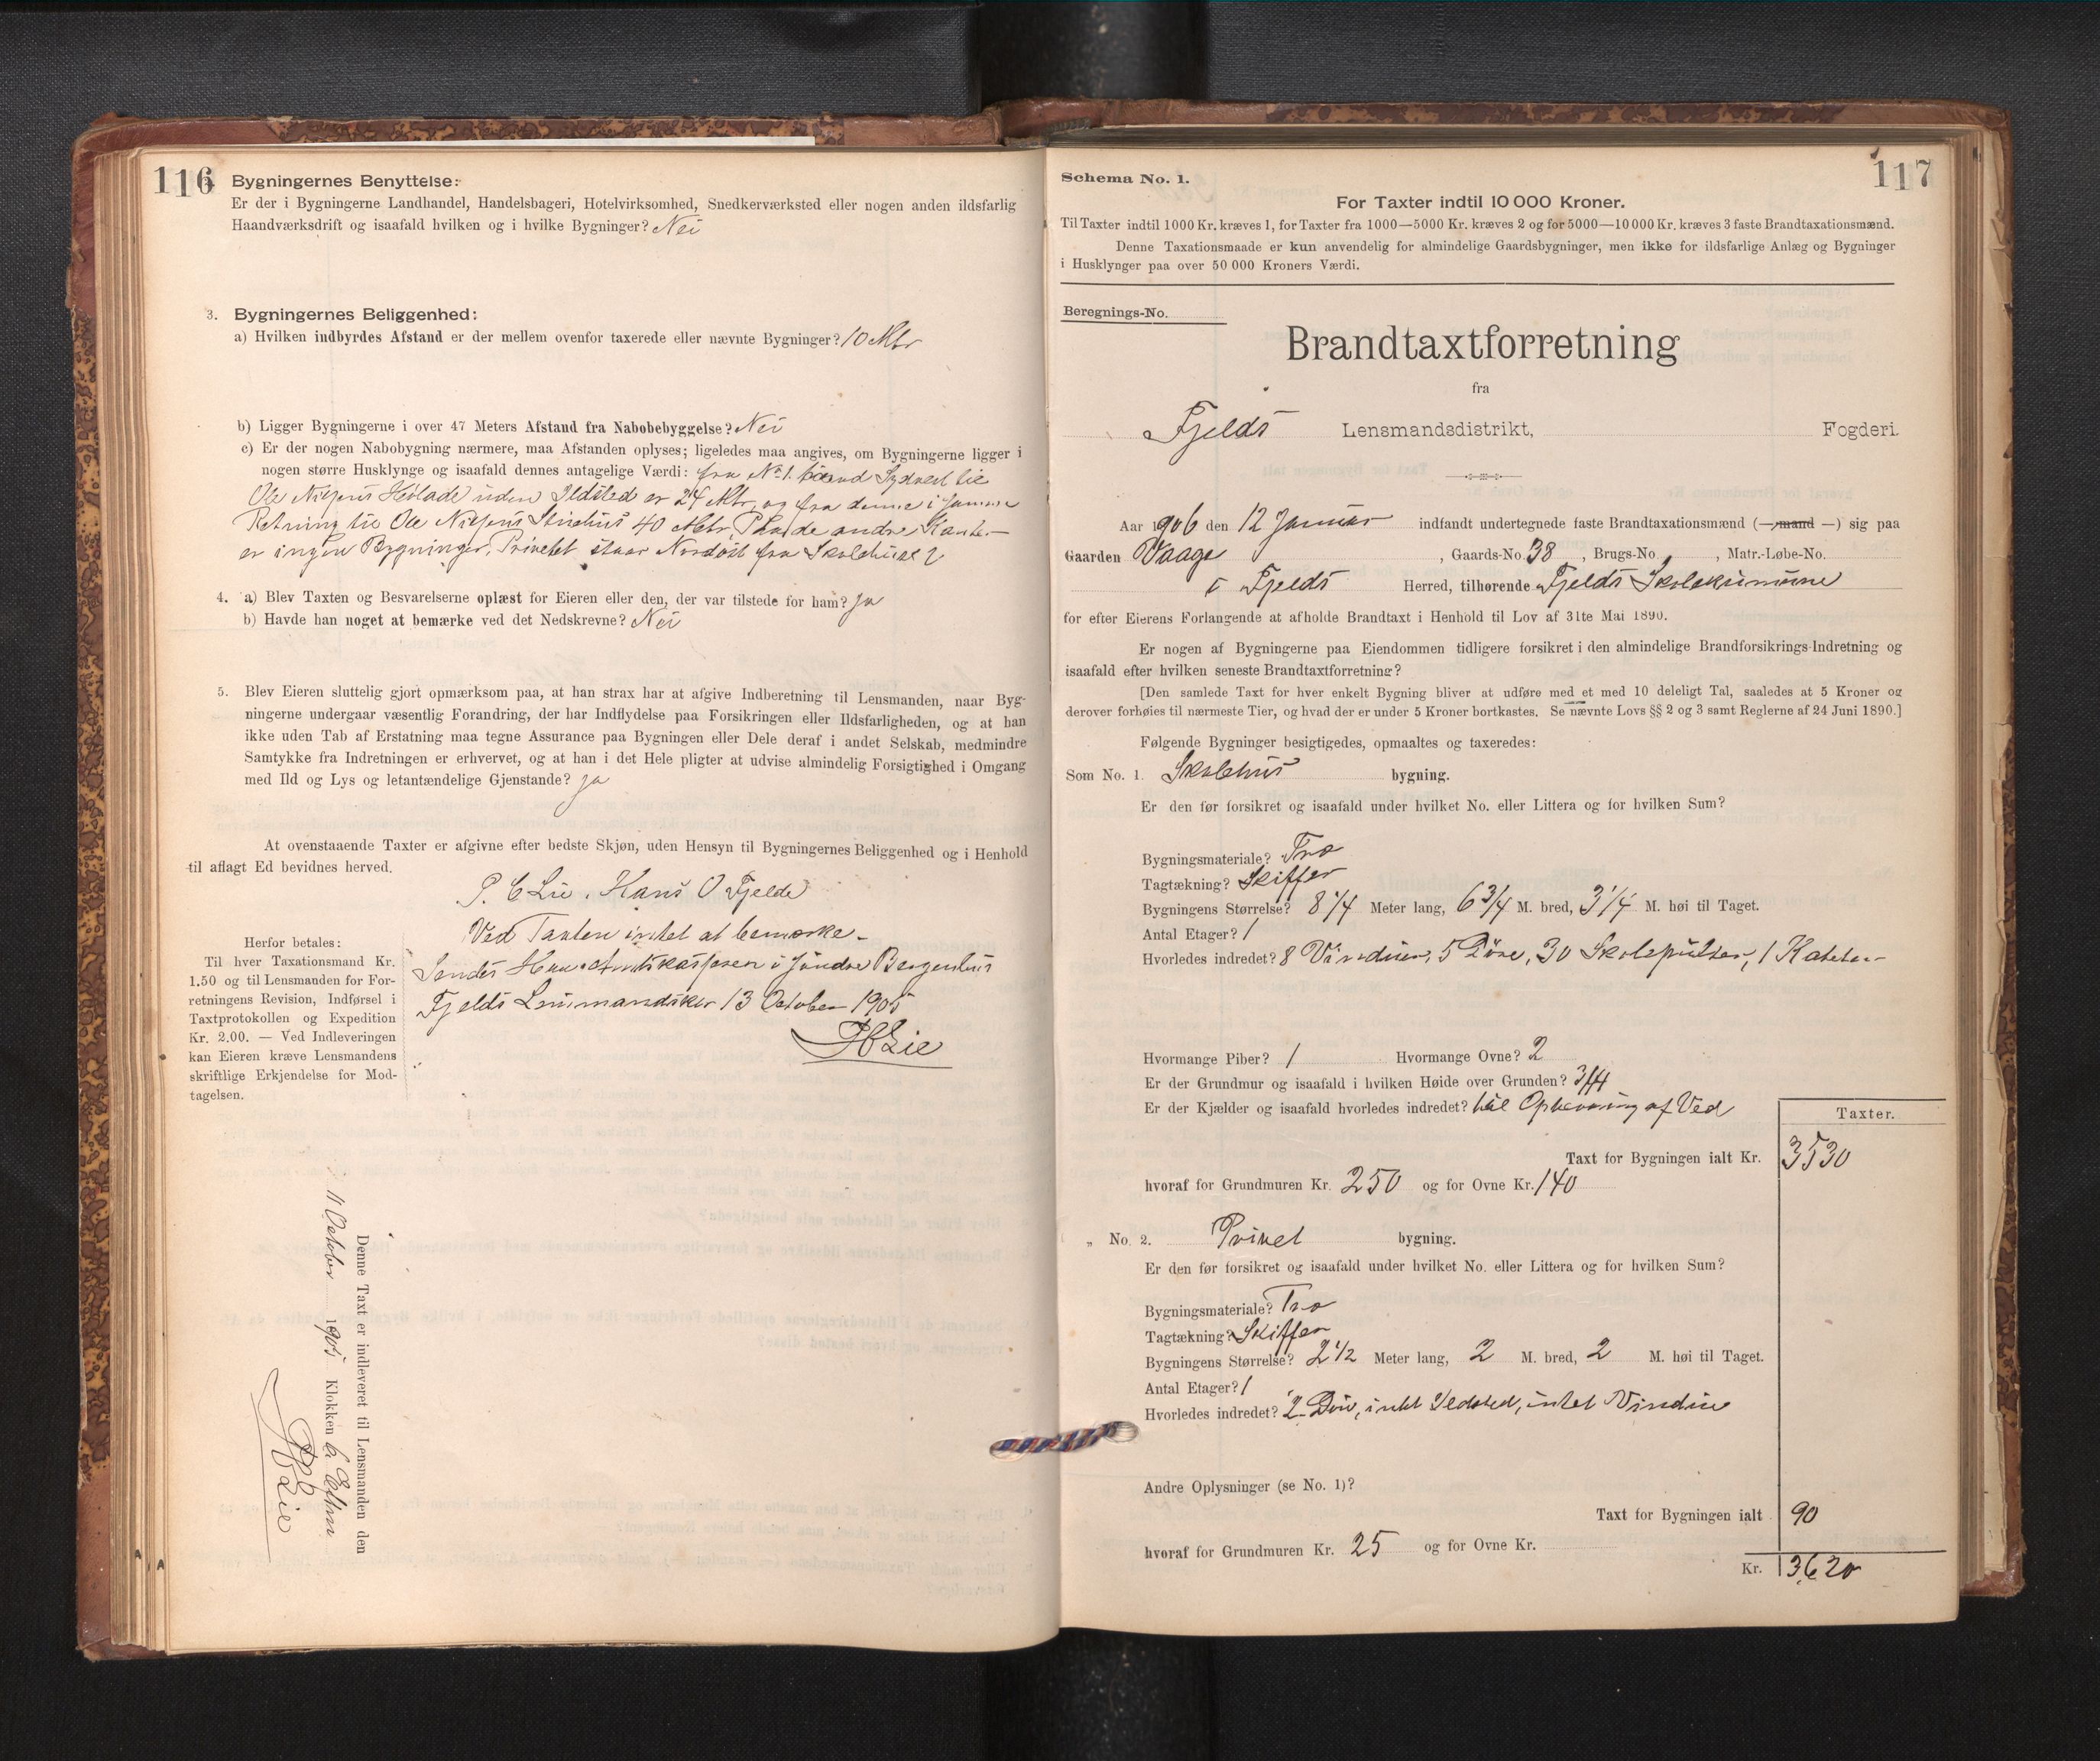 116
Bygningernes Benyttelse:
Er der i Bygningerne Landhandel, Handelsbageri, Hotelvirksomhed, Snedkerværksted eller nogen anden ildsfarlig
Haandværksdrift og isaafald hvilken og i hvilke Bygninger? Nei
3. Bygningernes Beliggenhed:
a) Hvilken indbyrdes Afstand er der mellem ovenfor taxerede eller nævnte Bygninger? 10 Mtr
b) Ligger Bygningerne i over 47 Meters Afstand fra Nabobebyggelse? Nei
c) Er der nogen Nabobygning nærmere, maa Afstanden oplyses; ligeledes maa angives, om Bygningerne ligger i
nogen større Husklynge og isaafald dennes antagelige Værdi: fra No 1. Sydvest til
Ole Nilsens Hølade uden Ildsted er 24 Mtr, og fra denne i samme
Retning til Ole Nilsens 40 Mtr, Paa de andre Kanter
er ingen Bygninger, Privetet staar Nordost fra Skolehuset
4. a) Blev Taxten og Besvarelserne oplæst for Eieren eller den, der var tilstede for ham? Ja
b) Havde han noget at bemærke ved det Nedskrevne? Nei
5. Blev Eieren sluttelig gjort opmærksom paa, at han strax har at afgive Indberetning til Lensmanden, naar Byg-
ningerne undergaar væsentlig Forandring, der har Indflydelse paa Forsikringen eller Ildsfarligheden, og at han
ikke uden Tab af Erstatning maa tegne Assurance paa Bygningen eller Dele deraf i andet Selskab, medmindre
Samtykke fra Indretningen er erhvervet, og at han i det Hele pligter at udvise almindelig Forsigtighed i Omgang
med Ild og Lys og letantændelige Gjenstande? ja
At ovenstaaende Taxter er afgivne efter bedste Skjøn, uden Hensyn til Bygningernes Beliggenhed og i Henhold
til aflagt Ed bevidnes herved.
P. C Lie. Hans O Fjelde
Ved Taxten intet at bemærke.
Sendes Hrr Amtskasseren i Søndre Bergenhus
Fjelds Lensmandskr 13 October 1905
HLie
Herfor betales:
Til hver Taxationsmand Kr.
1.50 og til Lensmanden for For-
retningens Revision, Indførsel i
Taxtprotokollen og Expedition
Kr. 2.00. — Ved Indleveringen
kan Eieren kræve Lensmandens
skriftlige Erkjendelse for Mod-
tagelsen.
Denne Taxt er indleveret til Lensmanden den
11 October 1905 Klokken 6 Eftm
HLie
117
Schema No. 1.
For Taxter indtil 10 000 Kroner.
Til Taxter indtil 1000 Kr. kræves 1, for Taxter fra 1000—5000 Kr. kræves 2 og for 5000—10 000 Kr. kræves 3 faste Brandtaxationsmænd.
Denne Taxationsmaade er kun anvendelig for almindelige Gaardsbygninger, men ikke for ildsfarlige Anlæg og Bygninger
i Husklynger paa over 50 000 Kroners Værdi.
Beregnings-No.
Brandtaxtforretning
fra
Fjelds Lensmandsdistrikt, Fogderi.
Aar 1906 den 12 Januar indfandt undertegnede faste Brandtaxationsmænd (—mand —) sig paa
Gaarden Vaage, Gaards-No. 38, Brugs-No., Matr.-Løbe-No.
i Fjelds Herred, tilhørende Fjelds Skolekommune
for efter Eierens Forlangende at afholde Brandtaxt i Henhold til Lov af 31te Mai 1890.
Er nogen af Bygningerne paa Eiendommen tidligere forsikret i den almindelige Brandforsikrings-Indretning og
isaafald efter hvilken seneste Brandtaxtforretning?
[Den samlede Taxt for hver enkelt Bygning bliver at udføre med et med 10 deleligt Tal, saaledes at 5 Kroner og
derover forhøies til nærmeste Tier, og hvad der er under 5 Kroner bortkastes. Se nævnte Lovs §§ 2 og 3 samt Reglerne af 24 Juni 1890.]
Følgende Bygninger besigtigedes, opmaaltes og taxeredes:
Som No. 1. Skolehus bygning.
Er den før forsikret og isaafald under hvilket No. eller Littera og for hvilken Sum?
Bygningsmateriale? Træ
Tagtækning? Skiffer
Bygningens Størrelse? 8 1/4 Meter lang, 6 3/4 M. bred, 3 1/4 M. høi til Taget.
Antal Etager? 1
Hvorledes indredet? 8 Vinduer, 5 Døre, 30 Skolepulter, 1 Katheter
Hvormange Piber? 1 Hvormange Ovne? 2
Er der Grundmur og isaafald i hvilken Høide over Grunden? 3/4
Er der Kjælder og isaafald hvorledes indredet? til Opbevaring af Ved
Taxter.
Taxt for Bygningen ialt Kr. 3530
hvoraf for Grundmuren Kr. 250 og for Ovne Kr. 140
„ No. 2. Privet bygning.
Er den før forsikret og isaafald under hvilket No. eller Littera og for hvilken Sum?
Bygningsmateriale? Træ
Tagtækning? Skiffer
Bygningens Størrelse? 2 1/2 Meter lang, 2 M. bred, 2 M. høi til Taget.
Antal Etager? 1
Hvorledes indredet? 2 Dør, intet Ildsted, intet Vindue
Andre Oplysninger (se No. 1)?
Taxt for Bygningen ialt 90
hvoraf for Grundmuren Kr. 25 og for Ovne Kr.
Kr. 3620